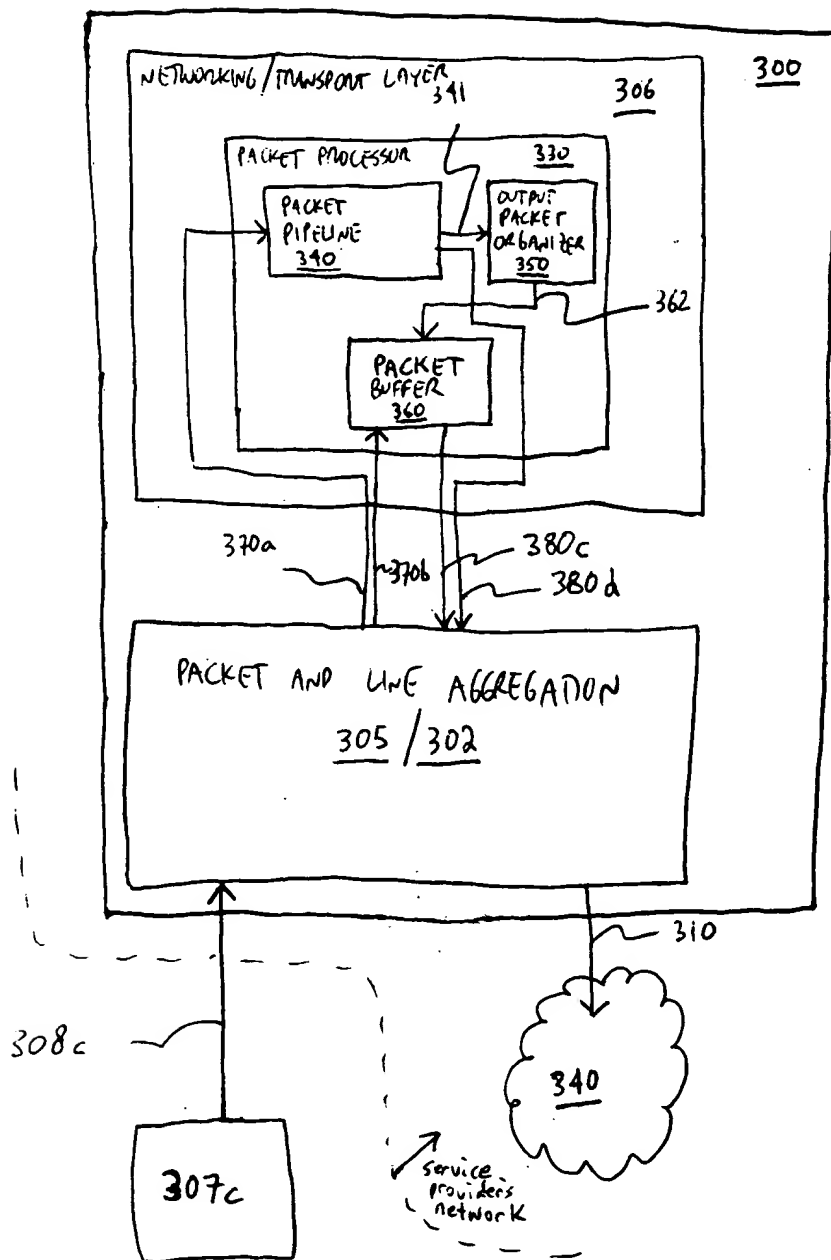 300
NETWORKING/TRANSPORT LAYER
341
306
PACKET PROCESSOR
330
PACKET
PIPELINE
340
OUTPUT
PACKET
ORGANIZER
350
362
PACKET
BUFFER
360
370a
370b
380c
380d
PACKET AND LINE AGGREGATION
305/302
310
308c
340
307c
service
provider's
network